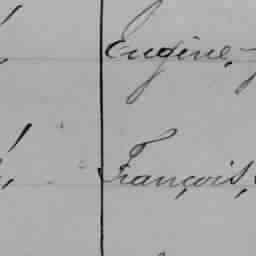 Eugène,
François,